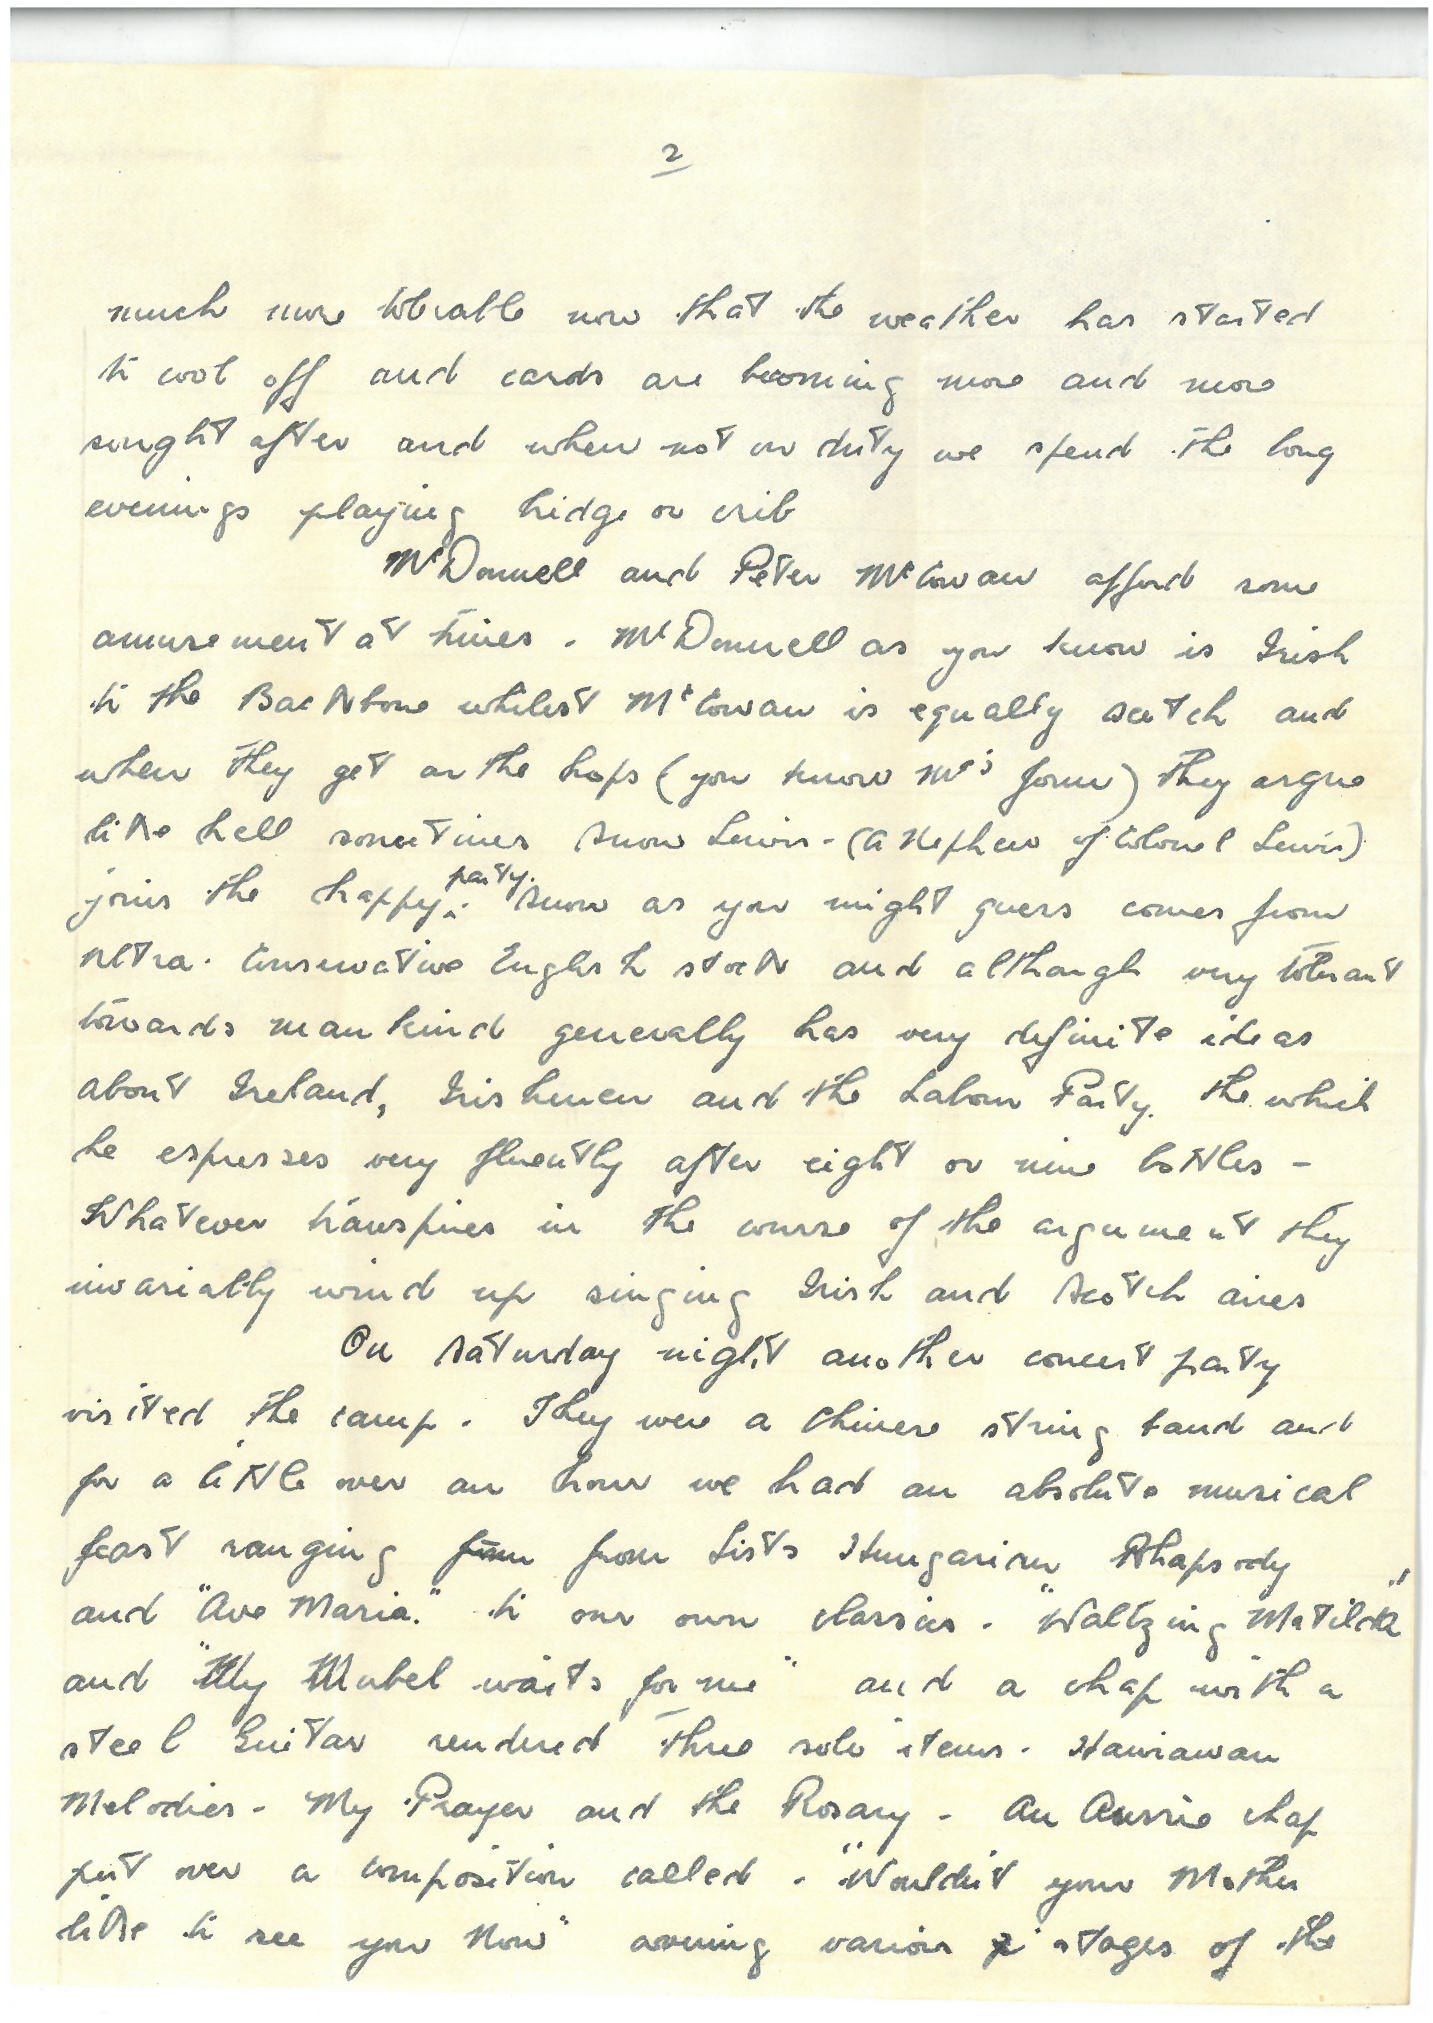 2
much more tolerable now that the weather has started
to cool off and cards are becoming more and more
sought after and when not on duty we spend the long
evenings playing bridge or crib
McDonnell and Peter McCowan afford some
amusement at times. McDonnell as you know is Irish
to the Backbone whilest McCowan is equally scotch and
when they get on the hops (you know Mc's form) they argue
like hell sometimes Snow Lewis - (a Nephew of Colonel Lewis)
joins the happy party. Snow as you might guess comes from
ultra. Conservative English stock and although very tolerant
towards mankind generally has very definite ideas
about Ireland, Irishmen and the Labour Party. the which
he espresses very fluently after eight or nine bottles -
Whatever transpires in the course of the argument they
invariably wind up singing Irish and Scotch aires
On Saturday night another concert party
visited the camp. They were a Chinese string band and
for a little over an hour we had an absolute musical
feast ranging from from Lists Hungarian Rhapsody
and "Ave Maria." to our own classics. "Waltzing Matilda"
and "My Mabel waits for me" and a chap with a
steel Guitar rendered three solo items. Hawiawan
Melodies - My Prayer and the Rosary - An Aussie chap
put over a composition called. "Wouldn't your Mother
like to see you Now" various stages of the